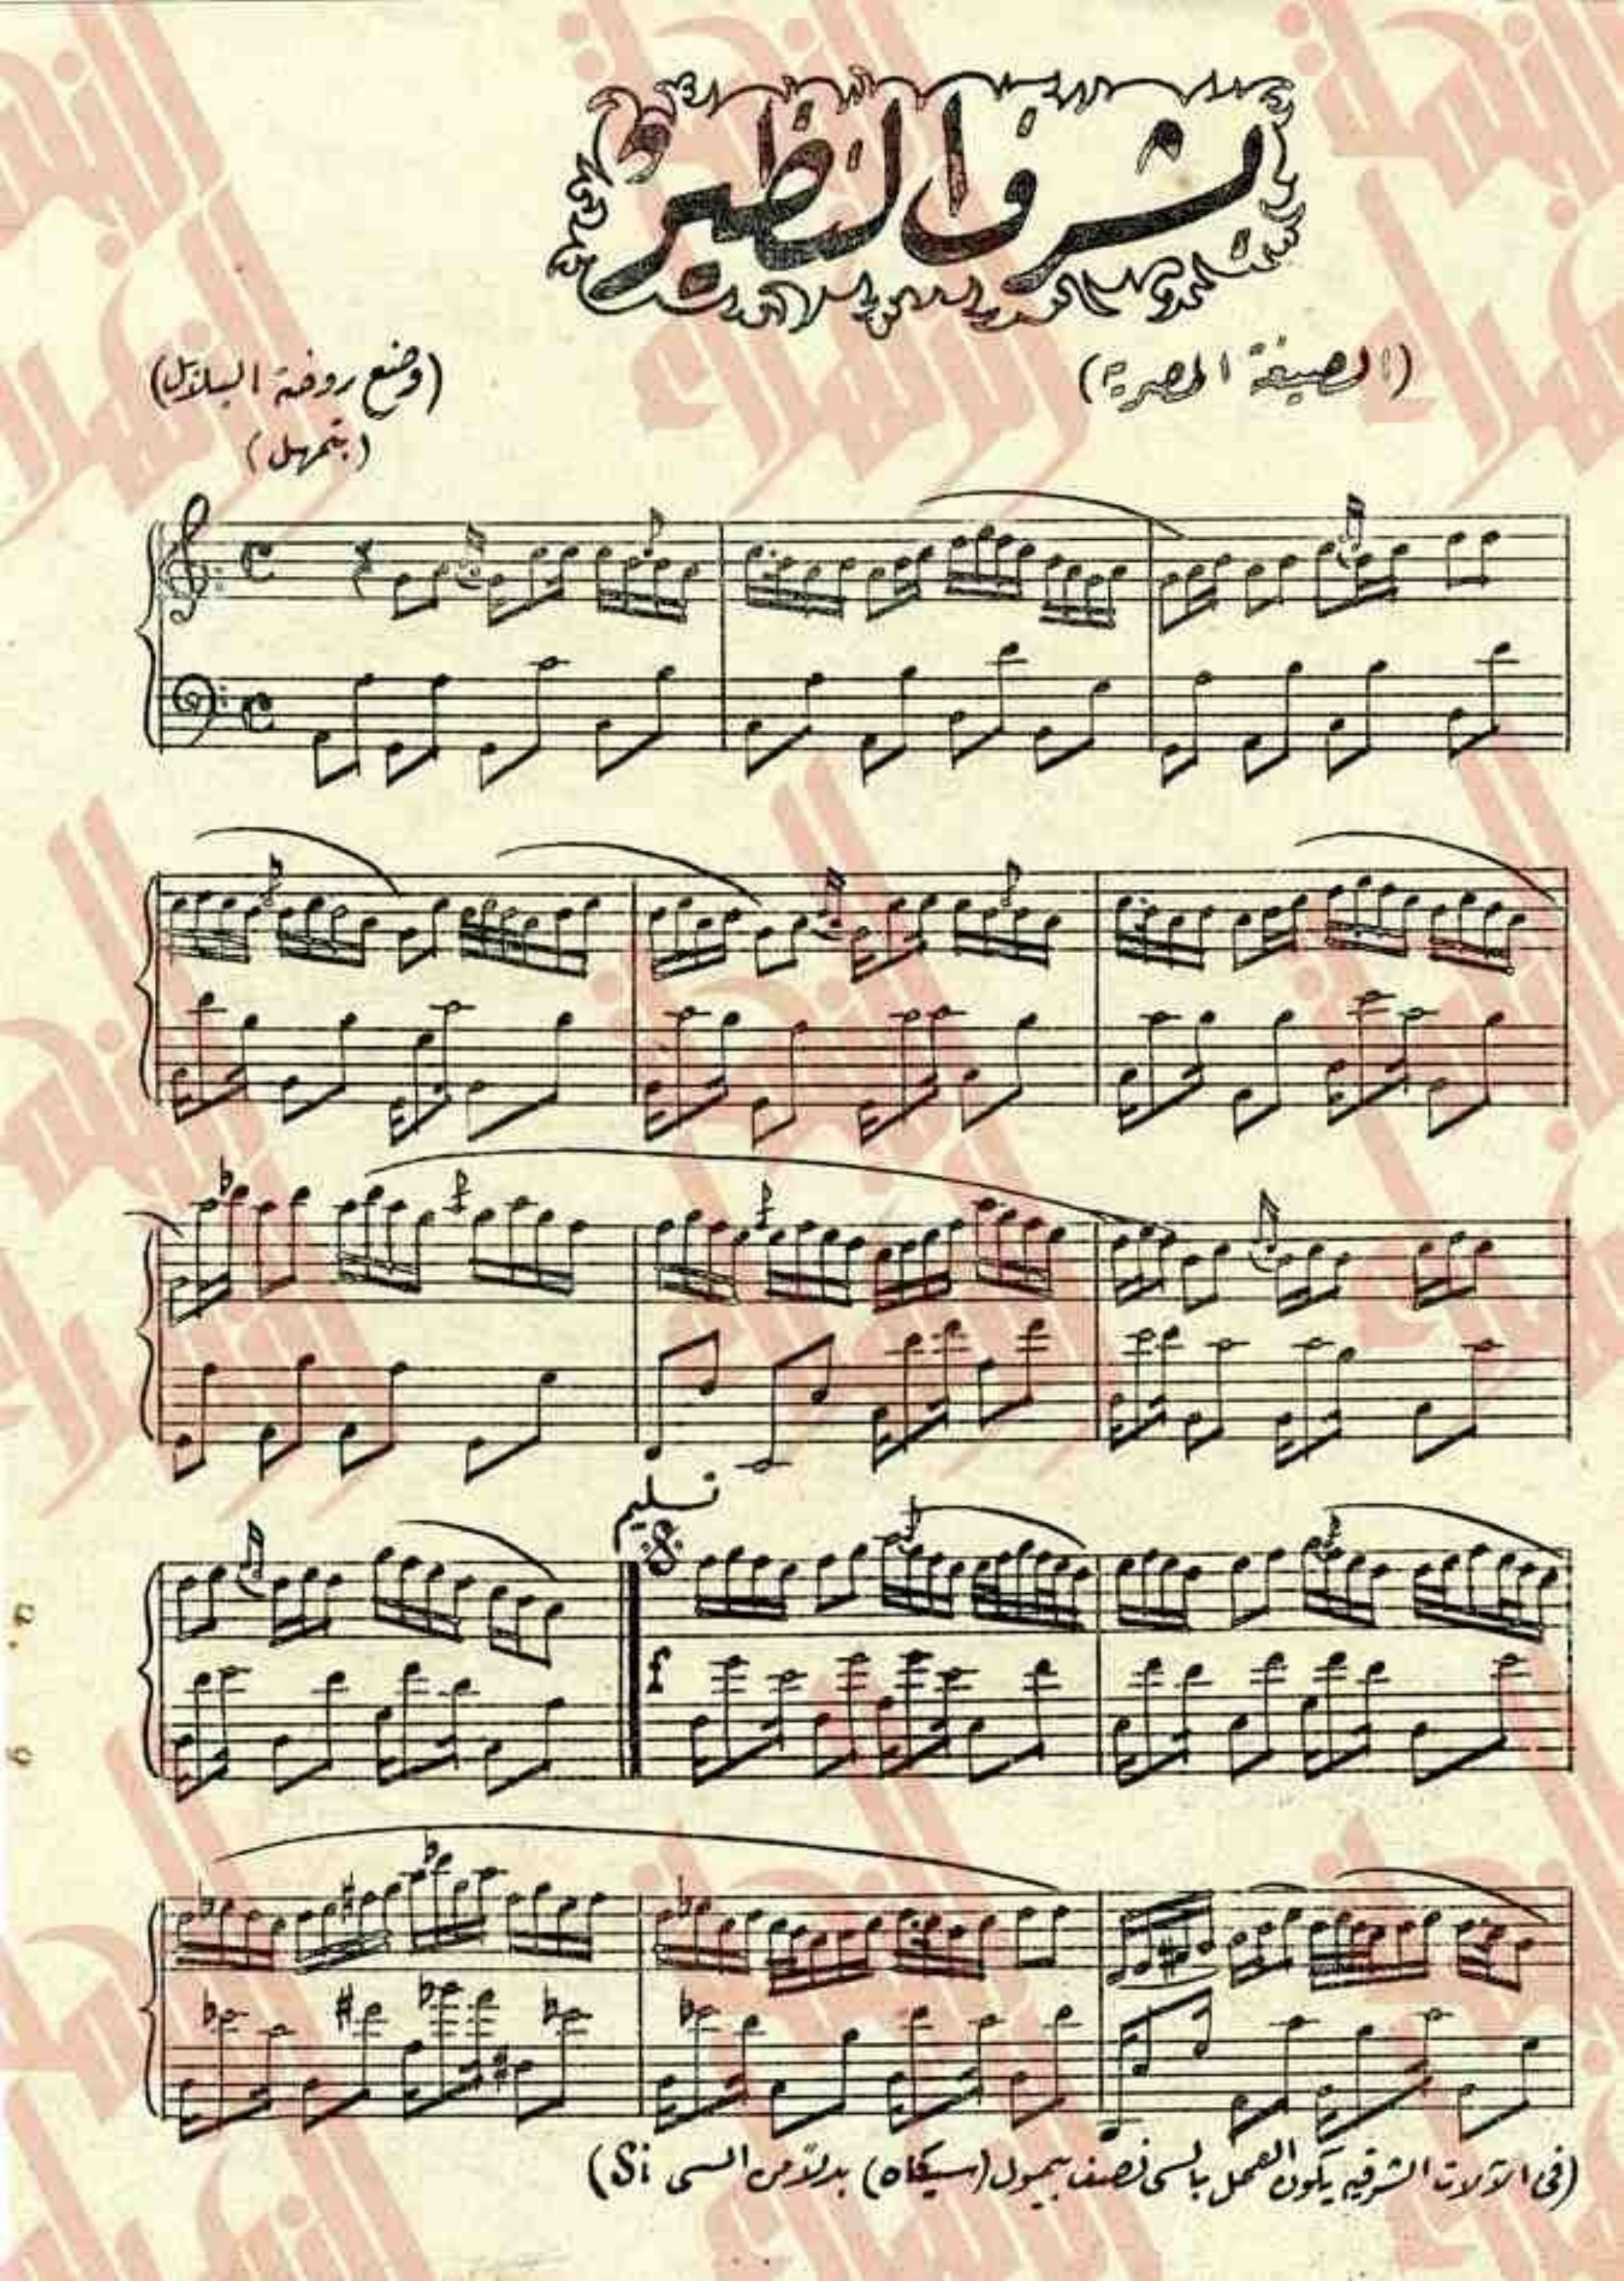 بشرف النظير
(الصيغة المصرية)
(وضع روضة البلابل)
(بتمهل)
تسليم
f
(فى الآلات الشرقيه يكون العمل بالسى نصف بيمول (سيكاه) بدلاً من السى Si)